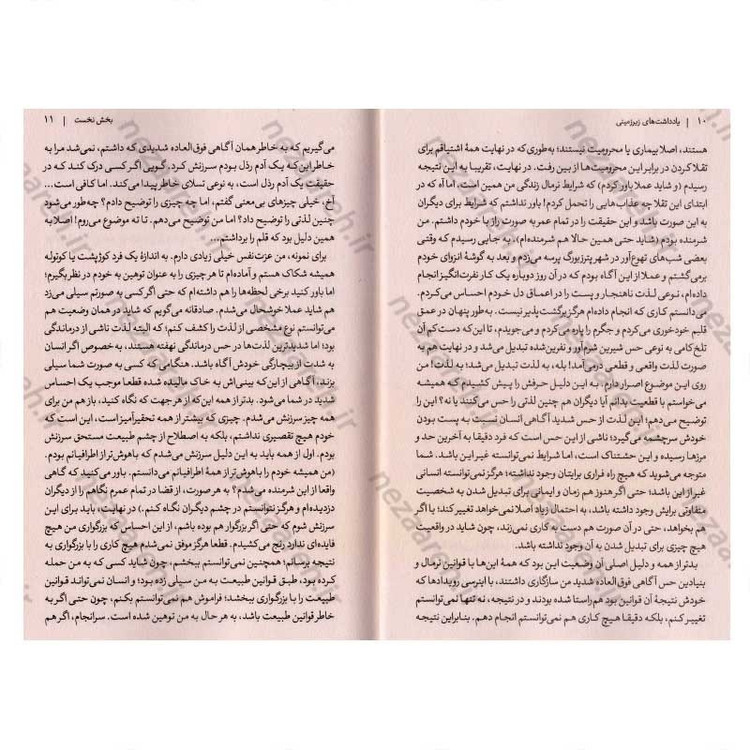 ۱۰ | یادداشت‌های زیرزمینی
هستند، اصلا بیماری یا محرومیت نیستند؛ به‌طوری که در نهایت همهٔ اشتیاقم برای
تقلا کردن در برابر این محرومیت‌ها از بین رفت. در نهایت، تقریبا به این نتیجه
رسیدم (و شاید عملا باور کردم) که شرایط نرمال زندگی من همین است. اما آه که در
ابتدای این تقلا چه عذاب‌هایی را تحمل کردم! باور نداشتم که شرایط برای دیگران
به این صورت باشد و این حقیقت را در تمام عمر به صورت راز با خودم داشتم. من
شرمنده بودم (شاید حتی همین حالا هم شرمنده‌ام)، به جایی رسیدم که وقتی
بعضی شب‌های تهوع‌آور در شهر پترزبورگ پرسه می‌زدم و بعد به گوشهٔ انزوای خودم
برمی‌گشتم و عملا از این آگاه بودم که در آن روز دوباره یک کار نفرت‌انگیز انجام
داده‌ام، نوعی لذت ناهنجار و پست را در اعماق دل خودم احساس می‌کردم.
می‌دانستم کاری که انجام داده‌ام هرگز برگشت‌پذیر نیست. به‌طور پنهان در عمق
قلبم خودخوری می‌کردم و جگرم را پاره می‌کردم و می‌جویدم، تا این‌که دست‌کم آن
تلخ‌کامی به نوعی حس شیرین شرم‌آور و نفرین‌شده تبدیل می‌شد و در نهایت هم به
صورت لذت واقعی و قطعی درمی‌آمد! بله، به لذت تبدیل می‌شد؛ به لذت! من
روی این موضوع اصرار دارم. به این دلیل حرفش را پیش کشیدم که همیشه
می‌خواستم با قطعیت بدانم آیا دیگران هم چنین لذتی را حس می‌کنند یا نه؟ این را
توضیح می‌دهم؛ این لذت از حس شدید آگاهی انسان نسبت به پست بودن
خودش سرچشمه می‌گیرد؛ ناشی از این حس است که فرد دقیقا به آخرین حد و
مرزها رسیده و این وحشتناک است، اما شرایط نمی‌تواند به گونهٔ دیگری باشد؛
متوجه می‌شوید که هیچ راه فراری برایتان وجود نداشته؛ هرگز نمی‌توانسته انسانی
غیر از این باشد؛ حتی اگر هنوز هم زمان و ایمانی برای تبدیل شدن به شخصیت
متفاوتی برایش وجود داشته باشد، به احتمال زیاد اصلا نمی‌خواهد تغییر کند؛ یا اگر
هم بخواهد، حتی در آن صورت هم دست به کاری نمی‌زند، چون شاید در واقعیت
هیچ چیزی برای تبدیل شدن به آن وجود نداشته باشد.
بدتر از همه و دلیل اصلی آن وضعیت این بود که همهٔ این‌ها با قوانین نرمال و
بنیادین حس آگاهی فوق‌العاده شدید من سازگاری داشتند، با اینرسی رویدادها که
خودش نتیجهٔ آن قوانین بود هم‌راستا شده بودند و در نتیجه، نه تنها نمی‌توانستم
تغییر کنم، بلکه دقیقا هیچ کاری هم نمی‌توانستم انجام دهم. بنابراین نتیجه
بخش نخست | ۱۱
می‌گیریم که به خاطر همان آگاهی فوق‌العاده شدیدی که داشتم، نمی‌شد مرا به
خاطر این که یک آدم رذل بودم سرزنش کرد. گویی اگر کسی درک کند که در
حقیقت یک آدم رذل است، به نوعی تسلای خاطر پیدا می‌کند. اما کافی است...
آخ، خیلی چیزهای بی‌معنی گفتم، اما چه چیزی را توضیح دادم؟ چه‌طور می‌شود
چنین لذتی را توضیح داد؟ اما من توضیح می‌دهم. تا ته موضوع می‌روم! اصلا به
همین دلیل بود که قلم را برداشتم...
برای نمونه، من عزت‌نفس خیلی زیادی دارم. به اندازهٔ یک فرد کوژپشت یا کوتوله
همیشه شکاک هستم و آماده‌ام تا هر چیزی را به عنوان توهین به خودم در نظر بگیرم؛
اما باور کنید برخی لحظه‌ها را هم داشته‌ام که حتی اگر کسی به صورتم سیلی می‌زد
هم شاید عملا خوشحال می‌شدم. صادقانه می‌گویم که شاید در همان وضعیت هم
می‌توانستم نوع مشخصی از لذت را کشف کنم؛ که البته لذت ناشی از درماندگی
بود؛ اما شدیدترین لذت‌ها در حس درماندگی نهفته هستند، به‌خصوص اگر انسان
به شدت از بیچارگی خودش آگاه باشد. هنگامی که کسی به صورت شما سیلی
بزند، آگاهی از این‌که بینی‌اش به خاک مالیده شده قطعا موجب یک احساس
شدید در شما می‌شود. بدتر از همه این‌که از هر جهت که نگاه کنید، باز هم من برای
همه چیز سرزنش می‌شدم. چیزی که بیشتر از همه تحقیرآمیز است، این است که
خودم هیچ تقصیری نداشتم، بلکه به اصطلاح از چشم طبیعت مستحق سرزنش
بودم. اول از همه باید به این دلیل سرزنش می‌شدم که باهوش‌تر از اطرافیانم بودم.
(من همیشه خودم را باهوش‌تر از همهٔ اطرافیانم می‌دانستم. باور می‌کنید که گاهی
واقعا از این شرمنده می‌شدم؟ به هر صورت، از قضا در تمام عمرم نگاهم را از دیگران
دزدیده‌ام و هرگز نتوانستم در چشم دیگران نگاه کنم.) در نهایت، باید برای این
سرزنش شوم که حتی اگر بزرگوار هم بوده باشم، از این احساس که بزرگواری من هیچ
فایده‌ای ندارد رنج می‌کشیدم. قطعا هرگز موفق نمی‌شدم هیچ کاری را با بزرگواری به
نتیجه برسانم؛ همچنین نمی‌توانستم ببخشم، چون شاید کسی که به من حمله
کرده بود، طبق قوانین طبیعت به من سیلی زده بود؛ و انسان نمی‌تواند قوانین
طبیعت را با بزرگواری ببخشد؛ فراموش هم نمی‌توانستم بکنم، چون حتی اگر به
خاطر قوانین طبیعت باشد، به هر حال به من توهین شده است. سرانجام، اگر هم
nezaareh.ir